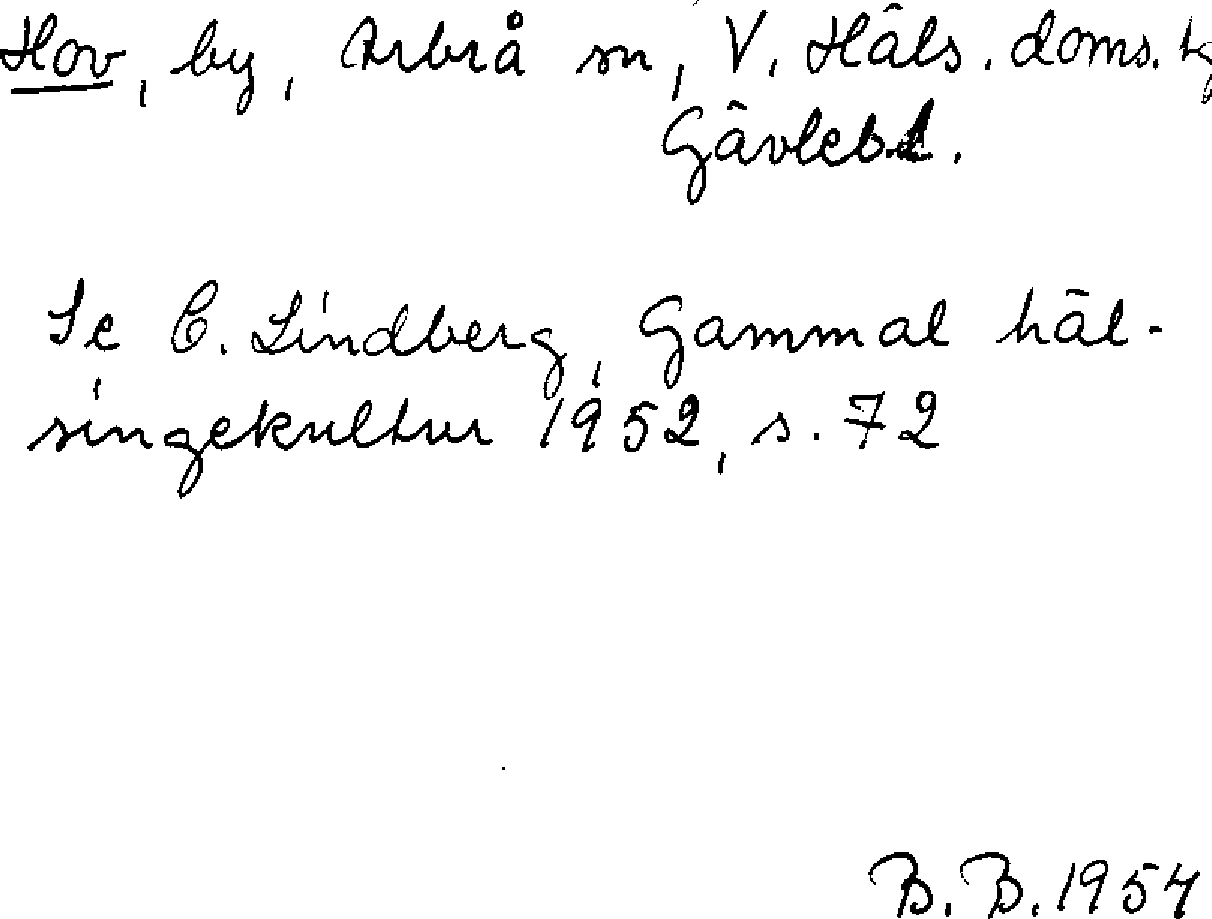 Hov, by, Arbrå sn, V. Häls. doms.
Gävleb.l.
Se C. Lindberg, Gammal häl-
singekultur 1952, s. 72
B. B. 1954